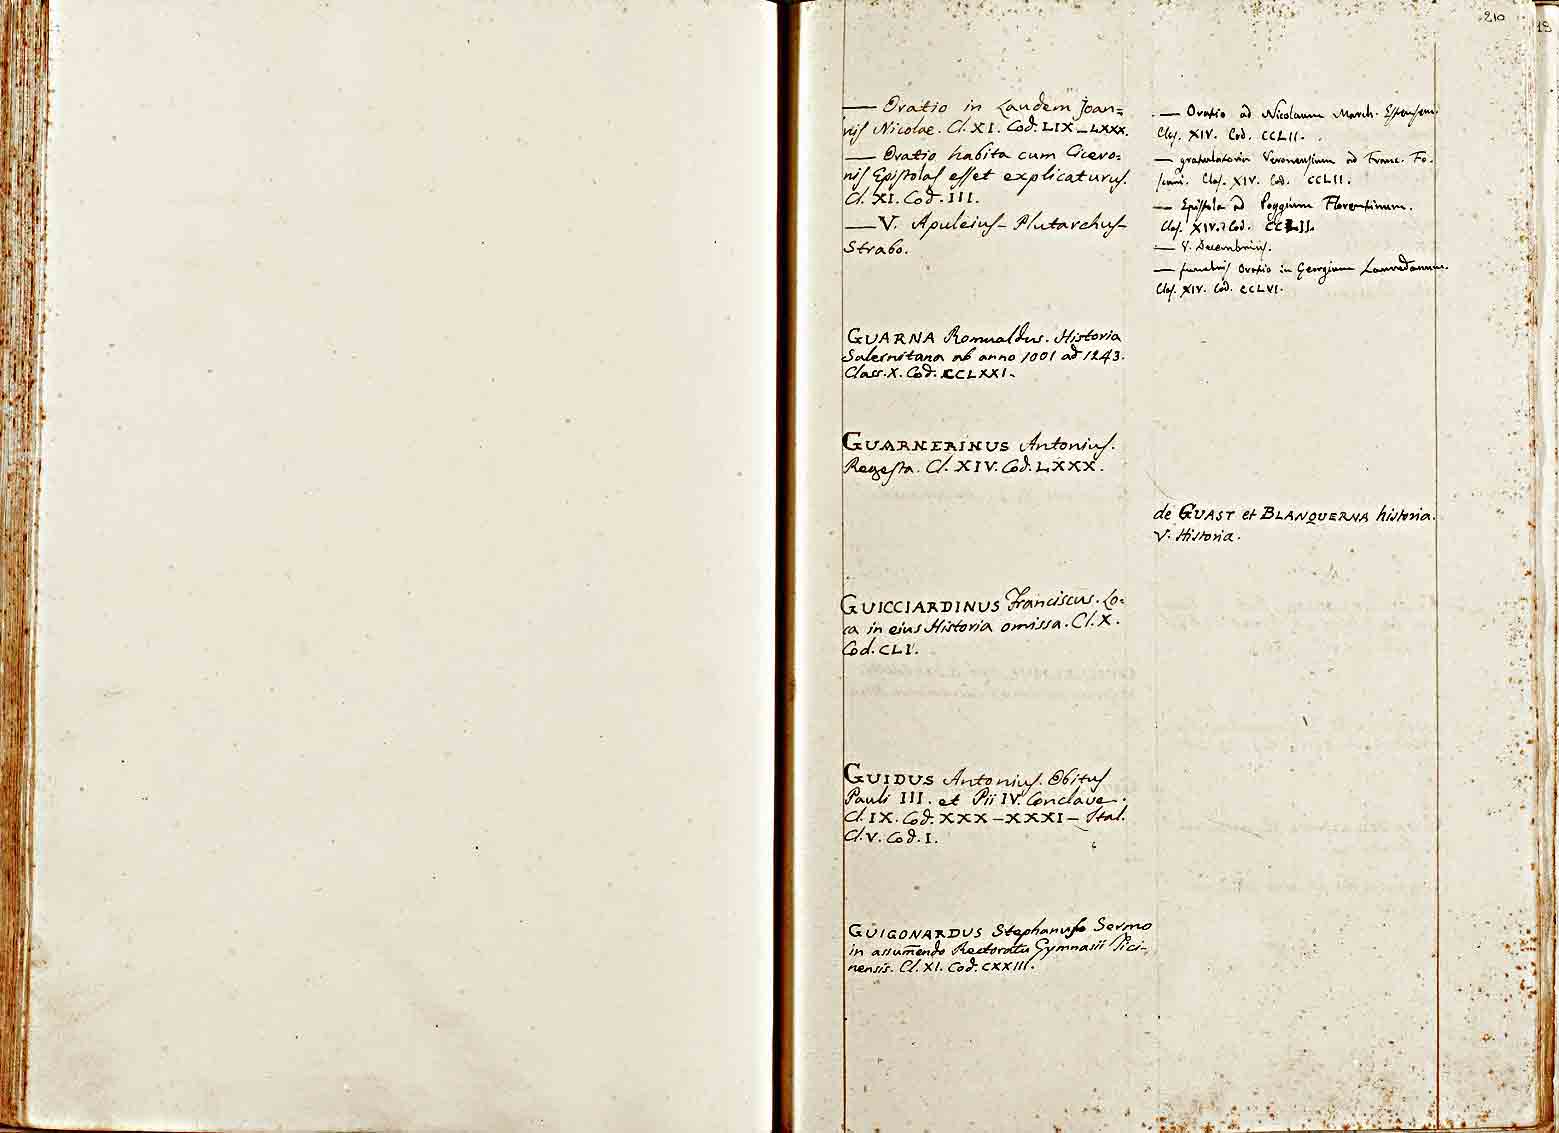 210
— Oratio in Laudem Joan=
nis Nicolae. Cl. XI. Cod. LIX — LXXX.
— Oratio habita cum Cicero=
nis Epistolas esset explicaturus.
Cl. XI. Cod. III.
— V. Apuleius — Plutarchus —
Strabo.
GUARNA Romualdus. Historia
Salernitana ab anno 1001 ad 1243.
Class. X. Cod. CCLXXI.
GUARNERINUS Antonius.
Regesta. Cl. XIV. Cod. LXXX.
GUICCIARDINUS Franciscus. Lo=
ca in ejus Historia omissa. Cl. X.
Cod. CLI.
GUIDUS Antonius. Obitus
Pauli III. et Pii IV. Conclave.
Cl. IX. Cod. XXX — XXXI — Ital.
Cl. V. Cod. I.
GUIGONARDUS Stephanus Sermo
in assumendo Rectoratu Gymnasii Tici-
nensis. Cl. XI. Cod. CXXIII.
— Oratio ad Nicolaum March. Estensem.
Clas. XIV. Cod. CCLII.
— gratulatoria Veronensium ad Franc. Fo-
scari. Clas. XIV. Cod. CCLII.
— Epistola ad Poggium Florentinum.
Clas. XIV. Cod. CCLII.
— V. Decembrius.
— funebris Oratio in Georgium Lauredanum.
Clas. XIV. Cod. CCLVI.
de GUAST et BLANQUERNA historia.
V. Historia.